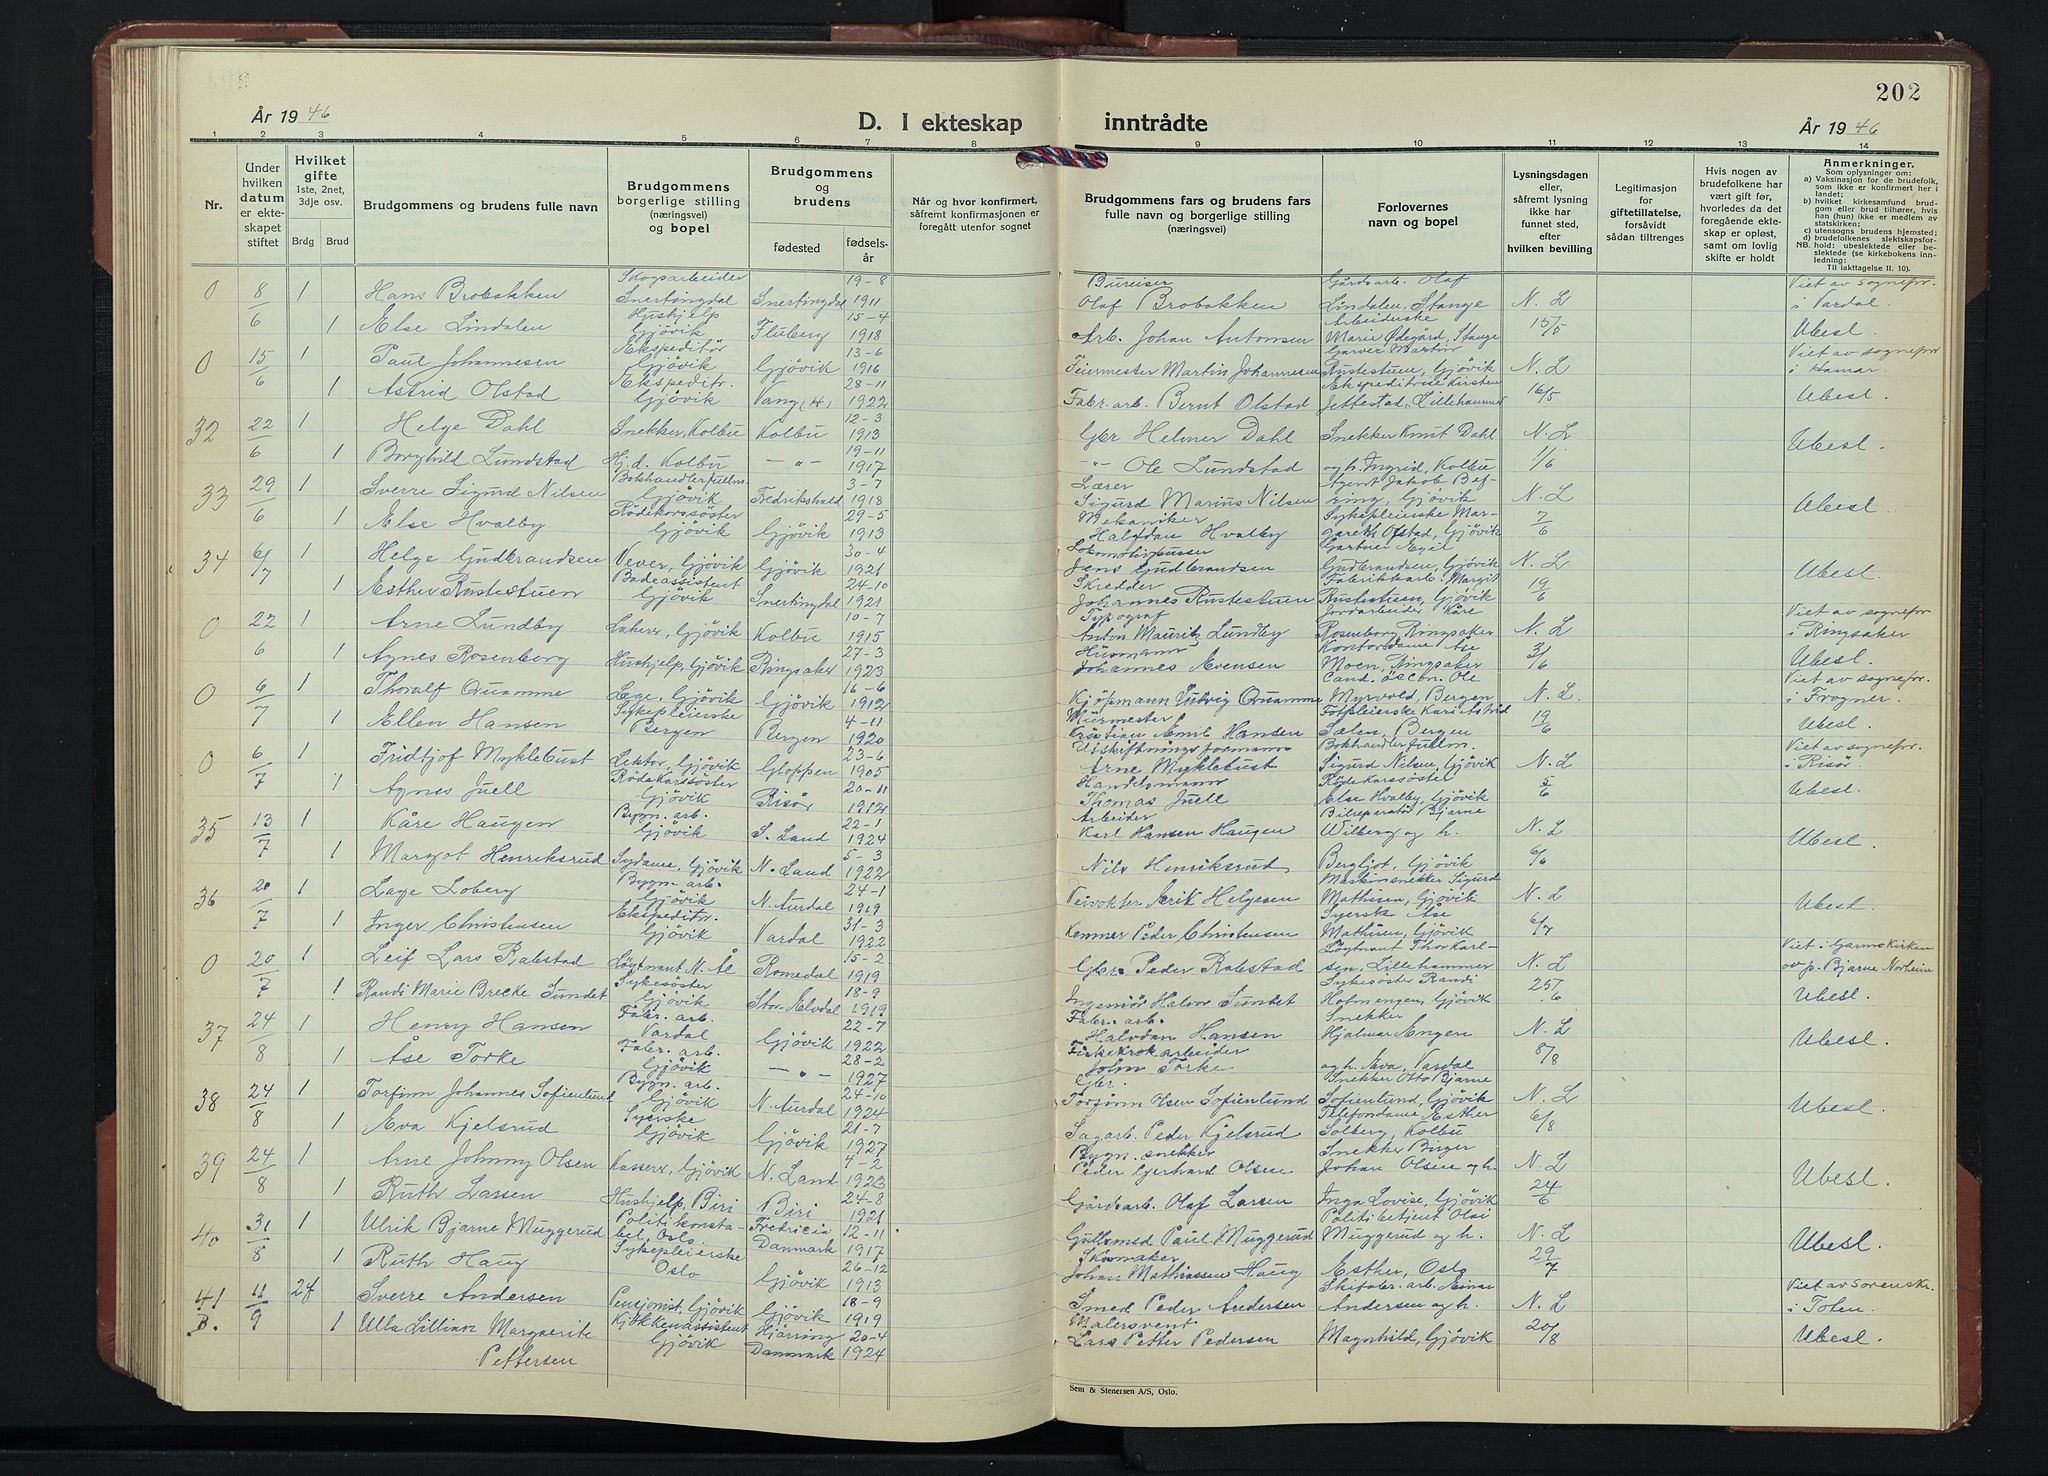 202
År 1946
D. I ekteskap inntrådte
År 1946
1 2 3 4 5 6 7 8 9 10 11 12 13 14
Nr.
Under hvilken datum er ekteskapet stiftet
Hvilket gifte 1ste, 2net, 3dje osv.
Brdg Brud
Brudgommens og brudens fulle navn
Brudgommens borgerlige stilling (næringsvei) og bopel
Brudgommens og brudens
fødested fødselsår
Når og hvor konfirmert, såfremt konfirmasjonen er foregått utenfor sognet
Brudgommens fars og brudens fars fulle navn og borgerlige stilling (næringsvei)
Forlovernes navn og bopel
Lysningsdagen eller, såfremt lysning ikke har funnet sted, efter hvilken bevilling
Legitimasjon for giftetillatelse, forsåvidt sådan tiltrenges
Hvis nogen av brudefolkene har vært gift før, hvorledes da det foregående ekteskap er opløst, samt om lovlig skifte er holdt
Anmerkninger.
Som oplysninger om:
a) Vaksinasjon for de brudefolk, som ikke er konfirmert her i landet;
b) hvilket kirkesamfund brudgom eller brud tilhører, hvis han (hun) ikke er medlem av statskirken;
c) utensogns brudens hjemsted;
d) brudefolkenes slektskapsforhold: ubeslektede eller beslektede (se kirkebokens innledning:
NB.
Til iakttagelse II. 10).
0 8/6 1 Hans Brobakken Skogsarbeider Snertingdal Snertingdal 19-8 1911 Bureiser Olaf Brobakken Gårdsarb. Olaf Lindalen, Stange N. L Viet av sognepr. i Vardal.
1 Else Lindalen Hushjelp Gjövik Fluberg 15-4 1918 Arb. Johan Antonsen Arbeiderske Marie Ødegård, Stange 15/5 Ubesl.
0 15/6 1 Paul Johannesen Ekspeditör Gjövik Gjövik 13-6 1916 Feiermester Martin Johannesen Garver Martin Rustestuen, Gjövik N. L Viet av sognepr i Hamar.
1 Astrid Olstad Ekspeditr. Gjövik Vang (H) 28-11 1922 Fabr. arb. Bernt Olstad Ekspeditrise Kirsten Jettestad, Lillehammer 16/5 Ubesl.
32 22/6 1 Helge Dahl Snekker, Kolbu Kolbu 12-3 1913 Gbr Helmer Dahl Snekker Knut Dahl N. L Ubesl.
1 Borghild Lundstad Hj. d. Kolbu —"— 19-11 1917 —"— Ole Lundstad og h. Ingrid, Kolbu 1/6
33 29/6 1 Sverre Sigurd Nilsen Bokhandlerfullm. Gjövik Fredrikshald 3-7 1918 Lærer Sigurd Marius Nilsen Agent Jakob Bef-ring, Gjövik N. L Ubesl.
1 Else Hvalby Rödekorssöster Gjövik Gjövik 29-5 1913 Mekaniker Halfdan Hvalby Sykepleierske Mar-gareth Ofstad, Gjövik 7/6
34 6/7 1 Helge Gudbrandsen Vever, Gjövik Gjövik 30-4 1921 Jens Gudbrandsen Gartner Egil Gudbrandsen, Gjövik N. L Ubesl.
1 Esther Rustestuen Badeassistent Gjövik Snertingdal 24-10 1921 Skredder Johannes Rustestuen Fabrikkarb. Margit Rustestuen, Gjövik 19/6
0 22/6 1 Arne Lundby Gjövik Kolbu 10-7 1915 Typograf Anton Mauritz Lundby Jordarbeider Kåre Rosenborg, Ringsaker N. L Viet av sognepr i Ringsaker
1 Agnes Rosenborg Hushjelp, Gjövik Ringsaker 27-3 1923 Husmann Johannes Evensen Kontordame Åse Moen, Ringsaker 3/6 Ubesl.
0 6/7 1 Thoralf Quamme Lege, Gjövik Gjövik 16-6 1912 Kjöpmann Ludvig Quamme Cand. öscon. Ole Myrvold, Bergen N. L. Viet av sognepr. i Frogner.
1 Ellen Hansen Sykepleierske Bergen Bergen 4-11 1920 Murmester Kristian Emil Hansen Fotpleierske Kari Astrid Sælen, Bergen 19/6 Ubesl.
0 6/7 1 Fridtjof Myklebust Lektor, Gjövik Gloppen 23-6 1905 Utskiftningsformann Arne Myklebust Bokhandlerfullm. Sigurd Nilsen, Gjövik N. L Viet av sognepr. i Risör.
1 Agnes Juell Röde Korssöster Gjövik Risör 20-11 1912 Handelsmann Thomas Juell Rödekorssöster Else Hvalby, Gjövik 5/6 Ubesl.
35 13/7 1 Kåre Haugen Bygn. arb. Gjövik S. Land 22-1 1924 Arbeider Karl Hansen Haugen Bilreparatör Bjarne Wilberg og h. N. L Ubesl.
1 Margot Henriksrud Sydame, Gjövik N. Land 5-3 1922 Nils Henriksrud Bergljot, Gjövik 6/6
36 20/7 1 Lage Loberg Bygn. arb. Gjövik N. Aurdal 24-1 1919 Veivokter Erik Helgesen Maskinsnekker Sigurd Mathisen, Gjövik N. L Ubesl.
1 Inger Christensen Ekspeditr. Gjövik Vardal 31-3 1922 Kemner Peder Christensen Syersk Åse Mathisen, Gjövik 6/7
0 20/7 1 Leif Lars Rabstad Löytnant N. Ål Romedal 15-2 1919 Gbr. Peder Rabstad Löytnant Thor Karl-sen, Lillehammer N. L Viet i Garmokirken av p. Bjarne Norheim
1 Randi Marie Brecke Sundet Sykesöster Gjövik Stor-Elvdal 18-9 1919 Ingeniör Halvor Sundet Sykesöster Randi Holmengen, Gjövik 25/6 Ubesl.
37 24/8 1 Henry Hansen Fabr. arb. Vardal Gjövik 22-7 1922 Fabr. arb. Halvdan Hansen Snekker Hjalmar Engen N. L Ubesl.
1 Åse Torke Fabr. arb. Gjövik —"— 28-2 1927 Fiskekrokarbeider John Torke og h. Eva, Vardal 8/8
38 24/8 1 Torfinn Johannes Sofienlund Bygn. arb. Gjövik N. Aurdal 24-10 1924 Gbr. Torfinn Olsen Sofienlund Snekker Otto Bjarne Sofienlund, Gjövik N. L Ubesl.
1 Eva Kjelsrud Syerske Gjövik Gjövik 21-7 1927 Sagarb. Peder Kjelsrud Telefondame Esther Solberg, Kolbu 6/8
39 24/8 1 Arne Johnny Olsen Gjövik N. Land 4-2 1923 Bygn. snekker Peder Gerhard Olsen Snekker Birger Johan Olsen og h. N. L Ubesl.
1 Ruth Larsen Hushjelp, Biri Biri 24-8 1921 Gårdsarb. Olaf Larsen Inga Lovise, Gjövik 24/6
40 31/8 1 Ulrik Bjarne Muggerud Politikonsta-bel, Oslo Fredricia Danmark 12-11 1917 Gullsmed Paul Muggerud Politibetjent Olai Muggerud og h. N. L Ubesl.
1 Ruth Haug Sykepleierske Oslo Gjövik 26-12 1913 Skomaker Johan Mathiassen Haug Esther, Oslo 29/7
41 B. 11/9 2 f Sverre Andersen Pensjonist, Gjövik Gjövik 18-9 1919 Smed Peder Andersen Skifabr. arb. Einar Andersen og h. N. L Viet av sorenskr. i Toten.
1 Ulla Lillian Margnerite Pettersen Kjökkenassistent Gjövik Hjörring Danmark 20-4 1924 Malersvent Lars Petter Pedersen Magnhild, Gjövik 20/8 Ubesl.
Sem & Stenersen A/S, Oslo.